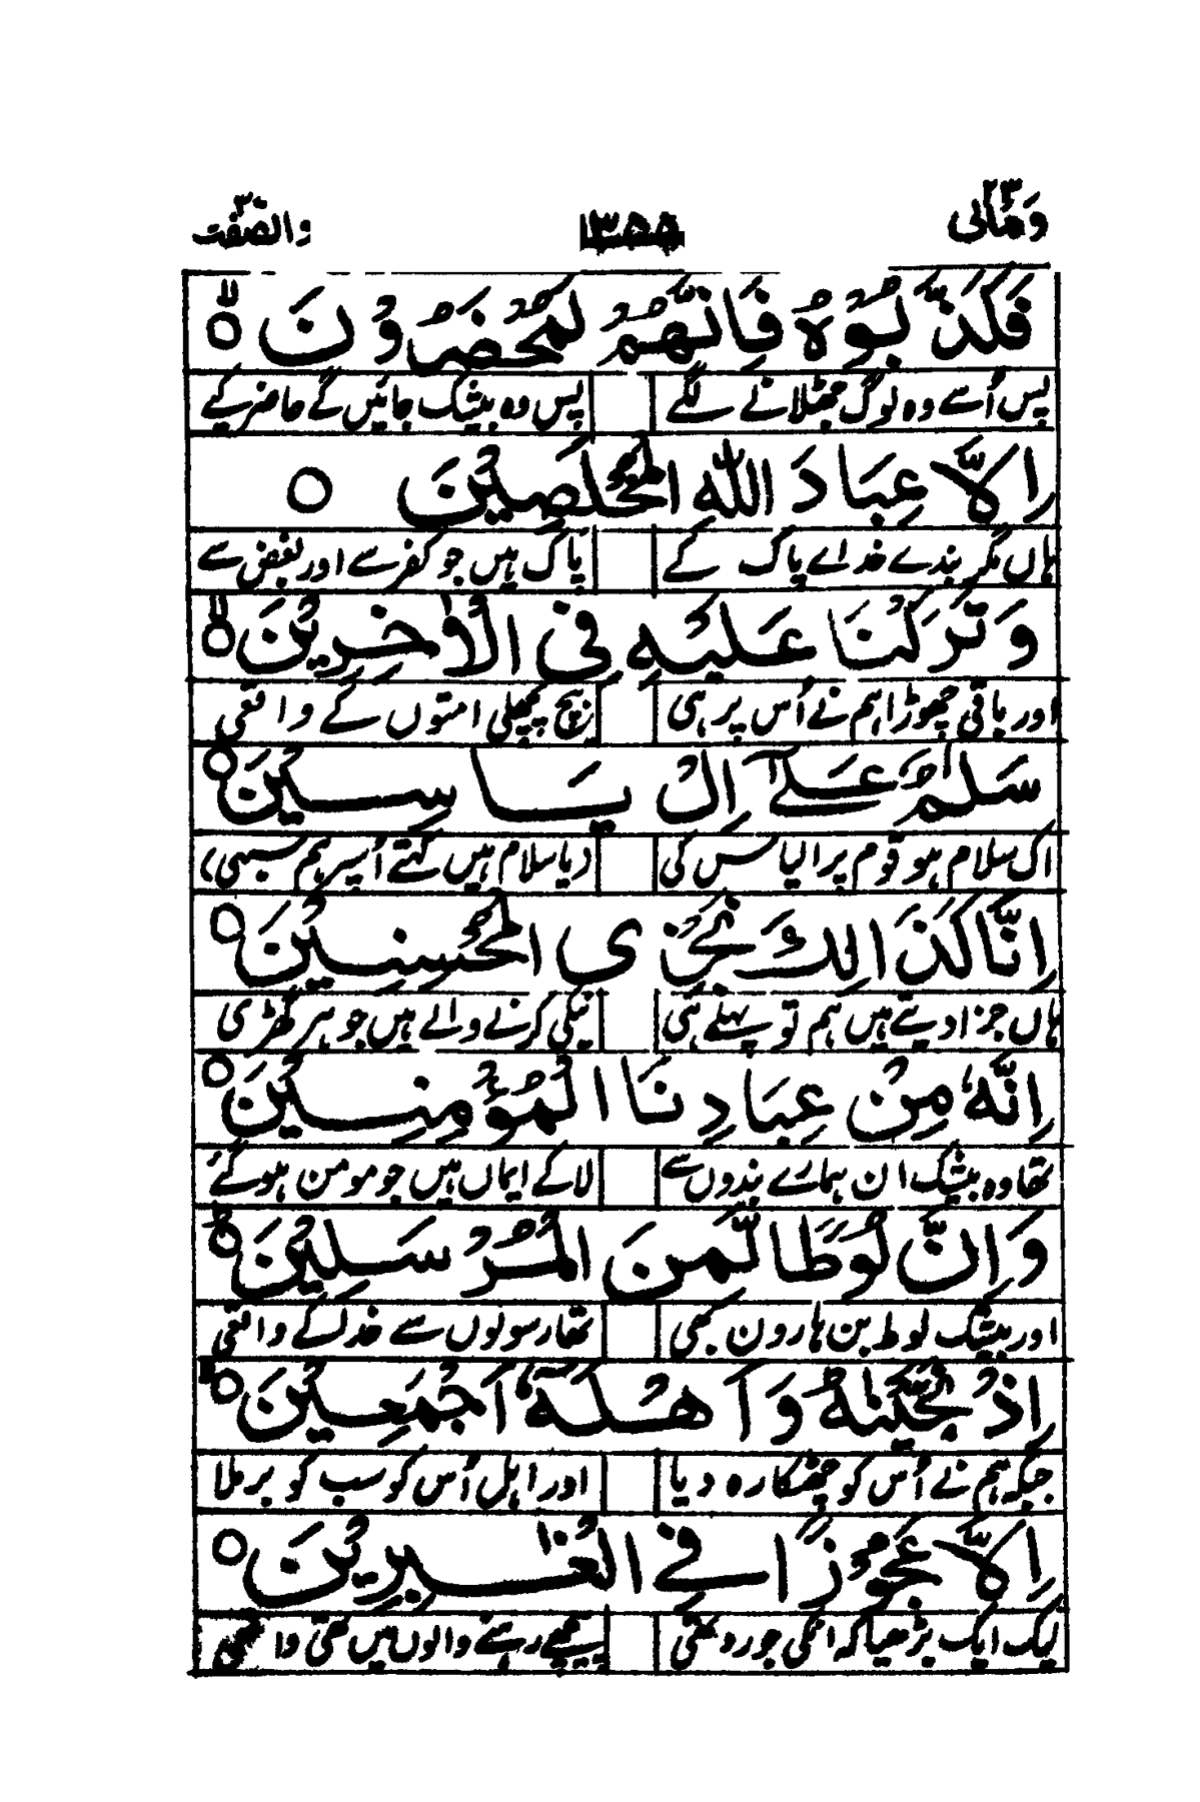 ومالی ۲۳ ۱۳۵۵ والصّٰفّٰت ۳۷
فَكَذَّبُوْهُ فَاِنَّهُمْ لَمُحْضَرُوْنَ ۙ○
پس اُسے وہ لوگ جھٹلانے لگے پس وہ بیشک جائیں گے حاضر کیے
اِلَّا عِبَادَ اللّٰهِ الْمُخْلَصِيْنَ ○
ہاں مگر بندے خداے پاک کے پاک ہیں جو کفر سے اور بغض سے
وَتَرَكْنَا عَلَيْهِ فِى الْاٰخِرِيْنَ ۙ○
اور باقی چھوڑا ہم نے اُس پر ہی بیچ پچھلی امتوں کے واقعی
سَلٰمٌ عَلٰٓى اِلْ يَاسِيْنَ ○
اک سلام ہو قوم پر الیاس کی دیا سلام ہیں کہتے اُسپر ہم سبھی)
اِنَّا كَذَالِكَ نَجْزِى الْمُحْسِنِيْنَ ○
ہاں جزا دیتے ہیں ہم تو پہلے ہی نیکی کرنے والے ہیں جو ہر گھڑی
اِنَّهٗ مِنْ عِبَادِنَا الْمُؤْمِنِيْنَ ○
تھا وہ بیشک ان ہمارے بندوں سے لا کے ایماں ہیں جو مومن ہو گئے
وَاِنَّ لُوْطًا لَّمِنَ الْمُرْسَلِيْنَ ○
اور بیشک لوط بن ہارون بھی تھا رسولوں سے خدا کے واقعی
اِذْ نَجَّيْنٰهُ وَاَهْلَهٗٓ اَجْمَعِيْنَ ○
جبکہ ہم نے اُس کو چھٹکارہ دیا اور اہل اُس کو سب کو برملا
اِلَّا عَجُوْزًا فِى الْغٰبِرِيْنَ ○
لیک ایک بڑھیا کہ انکی جورو تھی پیچھے رہنے والوں میں تھی واقعی